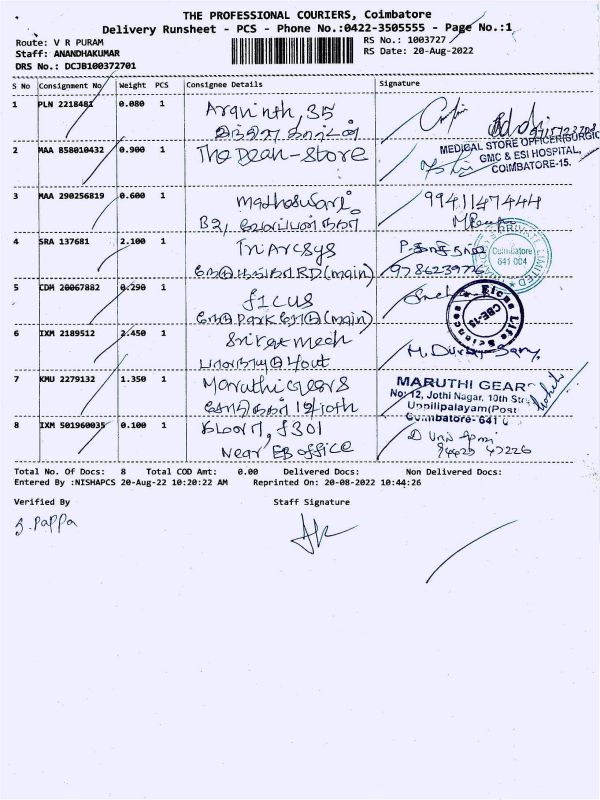 THE PROFESSIONAL COURIERS, Coimbatore
Delivery Runsheet - PCS - Phone No.:0422-3505555 - Page No.:1
Route: V R PURAM
RS No.: 1003727
Staff: ANANDHAKUMAR
RS Date: 20-Aug-2022
DRS No.: DCJB100372701
S No Consignment No Weight PCS Consignee Details Signature
1 PLN 2218481 0.080 1 Aravinth, 35
2 MAA 858010432 0.900 1 The Dean-Store
MEDICAL STORE OFFICER(SURGIC
GMC & ESI HOSPITAL,
COIMBATORE-15.
3 MAA 290256819 0.600 1 Matheswari 9941147444
B2,
4 SRA 137681 2.100 1 TriArcsys
RD.(main) 9786239776
Coimbatore
641 004
PRIVATE LIMITED
5 CDM 20067882 0.290 1 ficus
Park (main)
Ficus Life Sciences
CBE-15
6 IXM 2189512 2.450 1 Sri Rat mech
L/out
7 KMU 2279132 1.350 1 Maruthi Gears
MARUTHI GEAR
No: 12, Jothi Nagar, 10th Str
Uppilipalayam(Post
Coimbatore-641 0
8 IXM 501960035 0.100 1 Floor, F301
Near EB office
94425 47226
Total No. Of Docs: 8 Total COD Amt: 0.00 Delivered Docs: Non Delivered Docs:
Entered By :NISHAPCS 20-Aug-22 10:20:22 AM Reprinted On: 20-08-2022 10:44:26
Verified By Staff Signature
S. Pappa